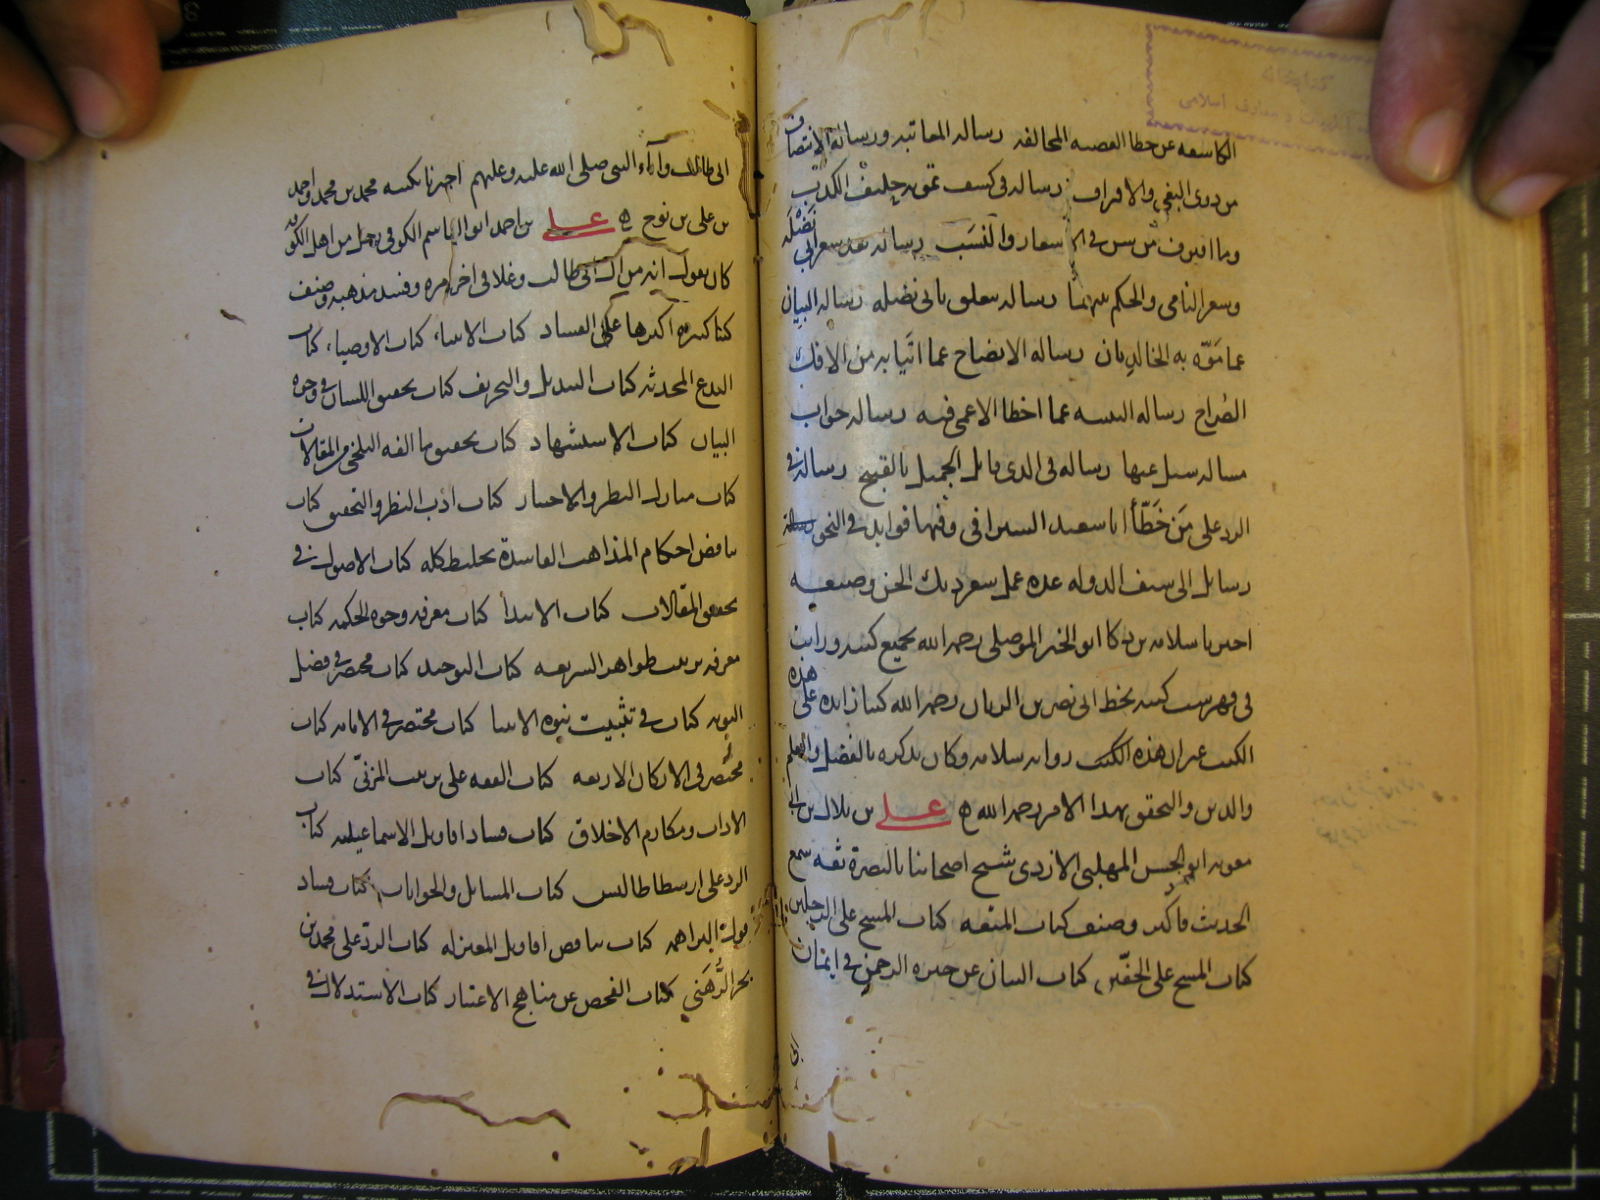 الكاشفه عن خطا العصبه المخالفه رساله المعاتبه ورسالة الانتصاف
من ذوى البغى والاقراف رساله فى كشف تمويه حليف الكذب
وما افترق من فى الاشعار والنسب رساله نقد شعر ابى نضلة
وشعر النامى والحكم بينهما رساله تتعلق بابى نضله رساله البيان
عما مَوّه به الخالديان رساله الايضاح عما اتَيا به من الافك
الصُراح رساله التنبيه عما اخطا الاعمى فيه رساله جواب
مساله سئل عنها رساله فى الذى قابل الجميل بالقبيح رسالة فى
الرد على مَن خَطّأ ابا سعيد السيرافى وفيها فوايد فى النحو
رسايل الى سيف الدوله عده عمل شعر ديك الجن وصنعه
اخبرنا سلامه بن ذكا ابو الخير الموصلى رحمه الله بجميع كتبه ورايت
فى فهرست كتبه بخط ابى نصر بن الريان رحمه الله كتبا زايده على هذه
الكتب غير ان هذه الكتب رواية سلامه وكان يذكره بالفضل والعلم
والدين والتحقق بهذا الامر رحمه الله على بن بلال بن ابى
معويه ابو الحسن المهلبى الازدى شيخ اصحابنا بالبصرة ثقه سمع
الحديث فاكثر وصنف كتاب المتعه كتاب المسح على الرجلين
كتاب المسح على الخفّين كتاب البيان عن خيره الرحمن فى ايمان
ابى طالب وآباء النبى صلى الله عليه وعليهم اخبرنا بكتبه محمد بن محمد واحمد
بن على بن نوح على بن احمد ابو القاسم الكوفى رجل من اهل الكوفه
كان يقول انه من آل ابى طالب وغلا فى اخر امره وفسد مذهبه وصنف
كتبا كثيره اكثرها على الفساد كتاب الانبياء كتاب الاوصياء كتاب
البدع المحدثه كتاب التبديل والتحريف كتاب تحقيق اللسان فى وجوه
البيان كتاب الاستشهاد كتاب تحقيق ما الفه البلخى من المقالات
كتاب منازل النظر والاختيار كتاب ادب النظر والتحقيق كتاب
تناقض احكام المذاهب الفاسدة تخليط كله كتاب الاصول فى
تحقيق المقالات كتاب الابتدا كتاب معرفه وجوه الحكمه كتاب
معرفه ترتيب ظواهر الشريعه كتاب التوحيد كتاب مختصر فى فضل
التوبه كتاب فى تثبيت نبوه الانبيا كتاب مختصر فى الامامه كتاب
مختصر فى الاركان الاربعه كتاب الفقه على ترتيب المزنىّ كتاب
الاداب ومكارم الاخلاق كتاب فساد اقاويل الاسماعيليه كتاب
الرد على ارسطاطاليس كتاب المسايل والجوابات كتاب فساد
قول البراهمه كتاب تناقض اقاويل المعتزله كتاب الردّ على محمد بن
بحر الرُّهَنى كتاب الفحص عن مناهج الاعتبار كتاب الاستدلال فى